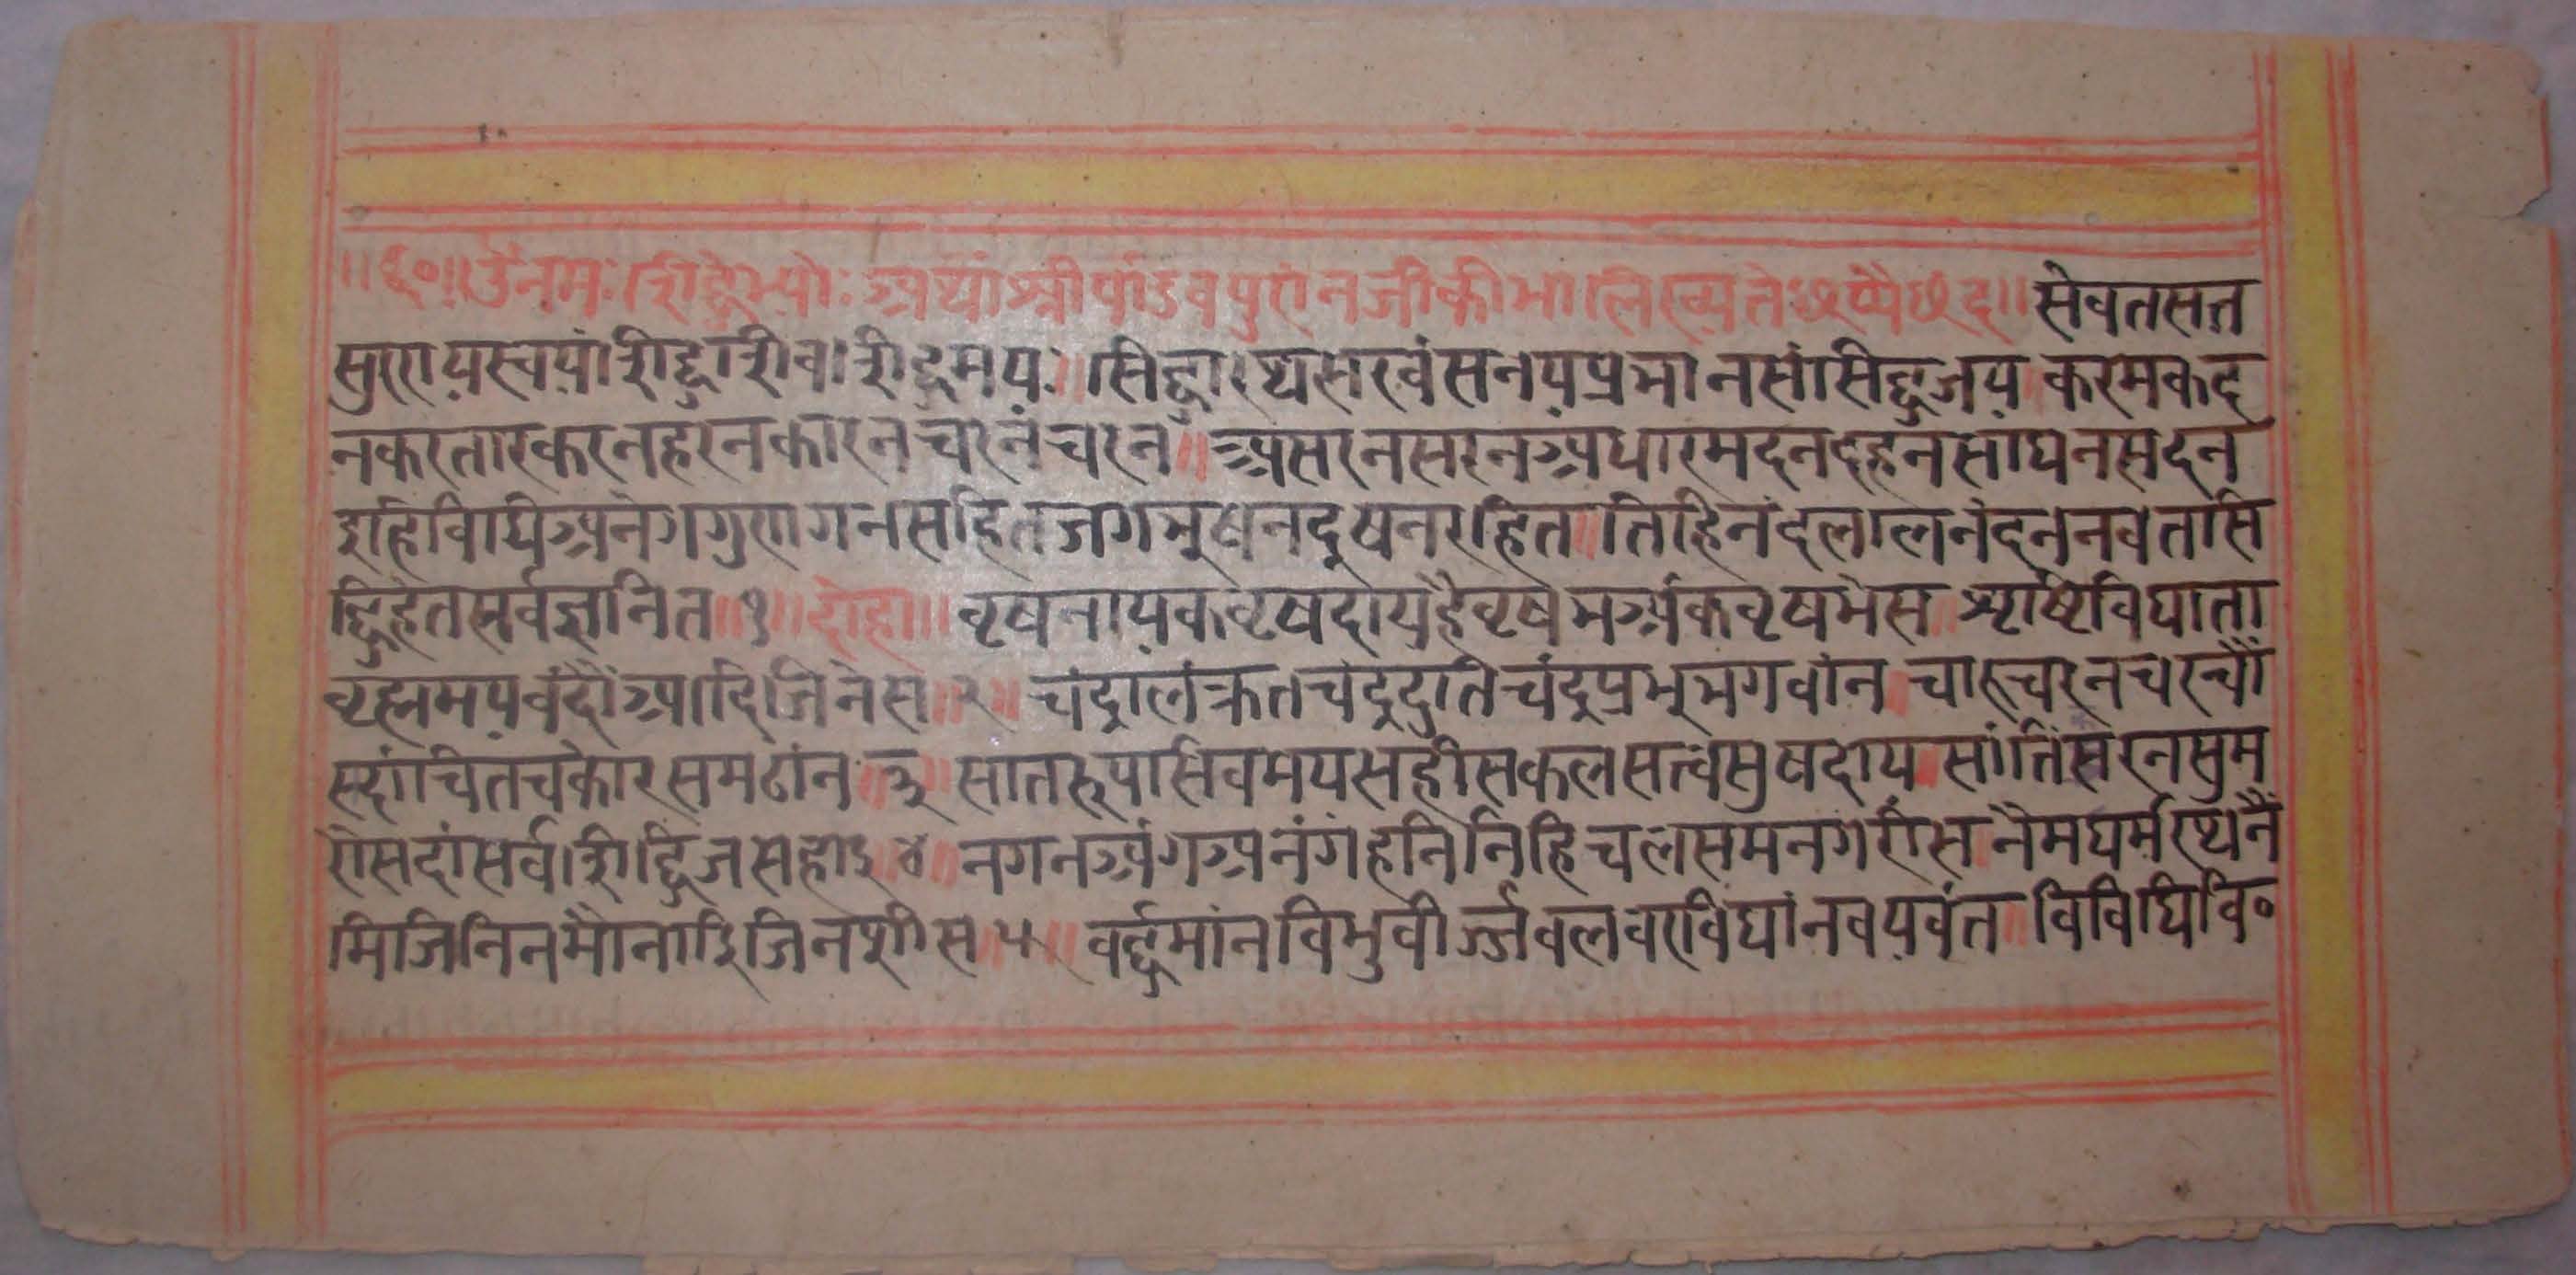 ॥६०॥उैनमःसिद्धेभ्योः अथ श्रीपांडवपुरांनजीकीभालिख्यतेछप्पैछंद॥ सेवतसत
सुरराय़स्वय़ांसिद्धसिवसिद्धमय़ः॥सिद्धारथसरवंसनय़प्रमानसांसिद्धजय़ करमकद
नकरतारकरनहरनकारनचरनंचरन॥अ्सरनसरनअ्धारमदनदहनसाधनसदन
इहिविधिअनेगगुणगनसहितजगभूषनदूषनरहित॥तिहिनंदलालनंदननवतसि
द्धिहेतसर्वज्ञनित॥१॥दोहा॥वृषनाय़कवृषदायहैवृषभअंकवृषभेस॥शृष्टिविधाता
वृह्ममय़वंदौंआदिजिनेस॥२॥चंद्रालंक्रतचंद्रदुतिचंद्रप्रभूभगवांन॥चारुचरनचरचौं
सदांचितचकोरसमठांन॥३॥सातरूपसिवमयसहीसकलसत्वसुषदाय॥सांतिसरनसुम
रोंसदांसर्वसिद्धिजसहोइ॥४॥नगनअंगअनंगहनिनिहिचलसमनगरीस॥नेमधर्मरथनै
मिजिनिनमौंनाइजिनशीस॥५॥वर्द्धमांनविभुवीर्ज्जवलवरविधांनवय़वंत॥विविधिवि॰